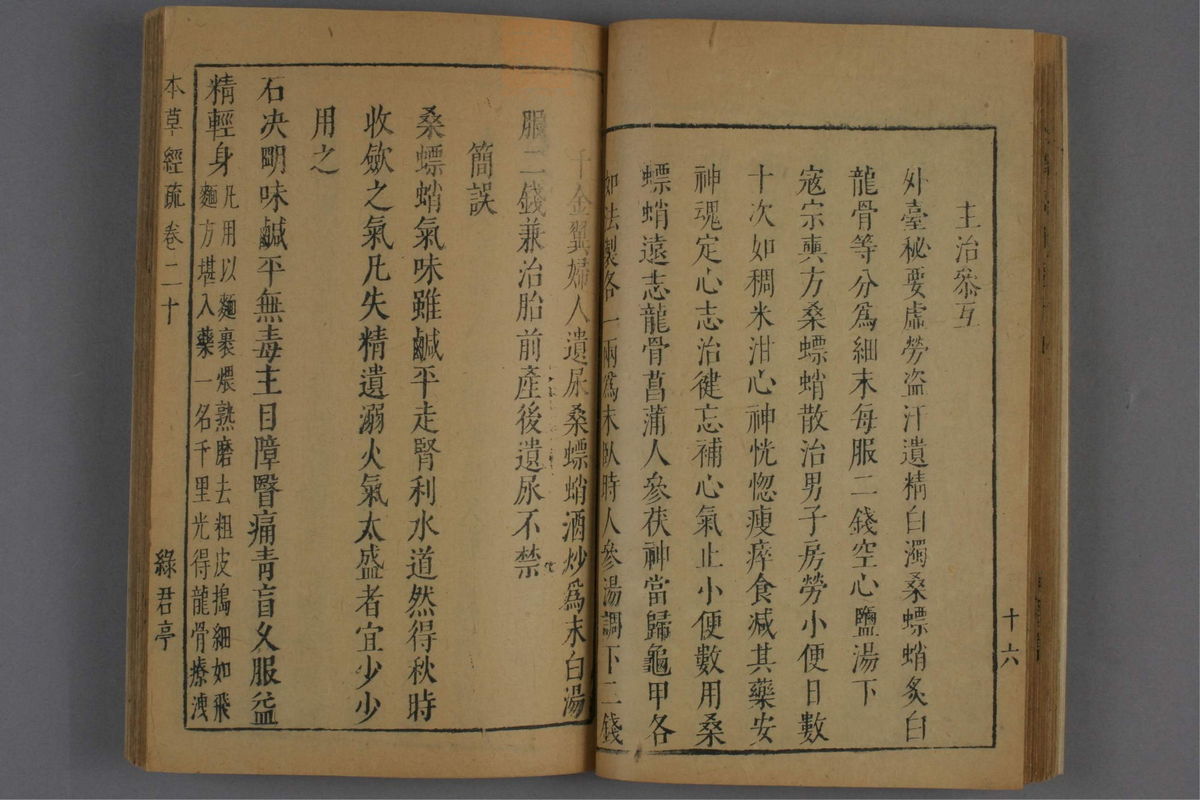 十六
主治叅互
外臺秘要虛勞盗汗遺精白濁桑螵蛸炙白
龍骨等分爲細末每服二錢空心鹽湯下
寇宗奭方桑螵蛸散治男子房勞小便日數
十次如稠米泔心神恍惚瘦瘁食減其藥安
神魂定心志治健忘補心氣止小便數用桑
螵蛸遠志龍骨菖蒲人參茯神當歸龜甲各
如法製各一兩爲末臥時人參湯調下二錢
千金翼婦人遺尿桑螵蛸酒炒爲末白湯
服二錢兼治胎前產後遺尿不禁
簡誤
桑螵蛸氣味雖鹹平走腎利水道然得秋時
收歛之氣凡失精遺溺火氣太盛者宜少少
用之
石决明味鹹平無毒主目障瞖痛靑盲久服益
精輕身
凡用以麵裹煨熟磨去粗皮搗細如飛
麵方堪入藥一名千里光得龍骨療洩
本草經疏 卷二十 綠君亭